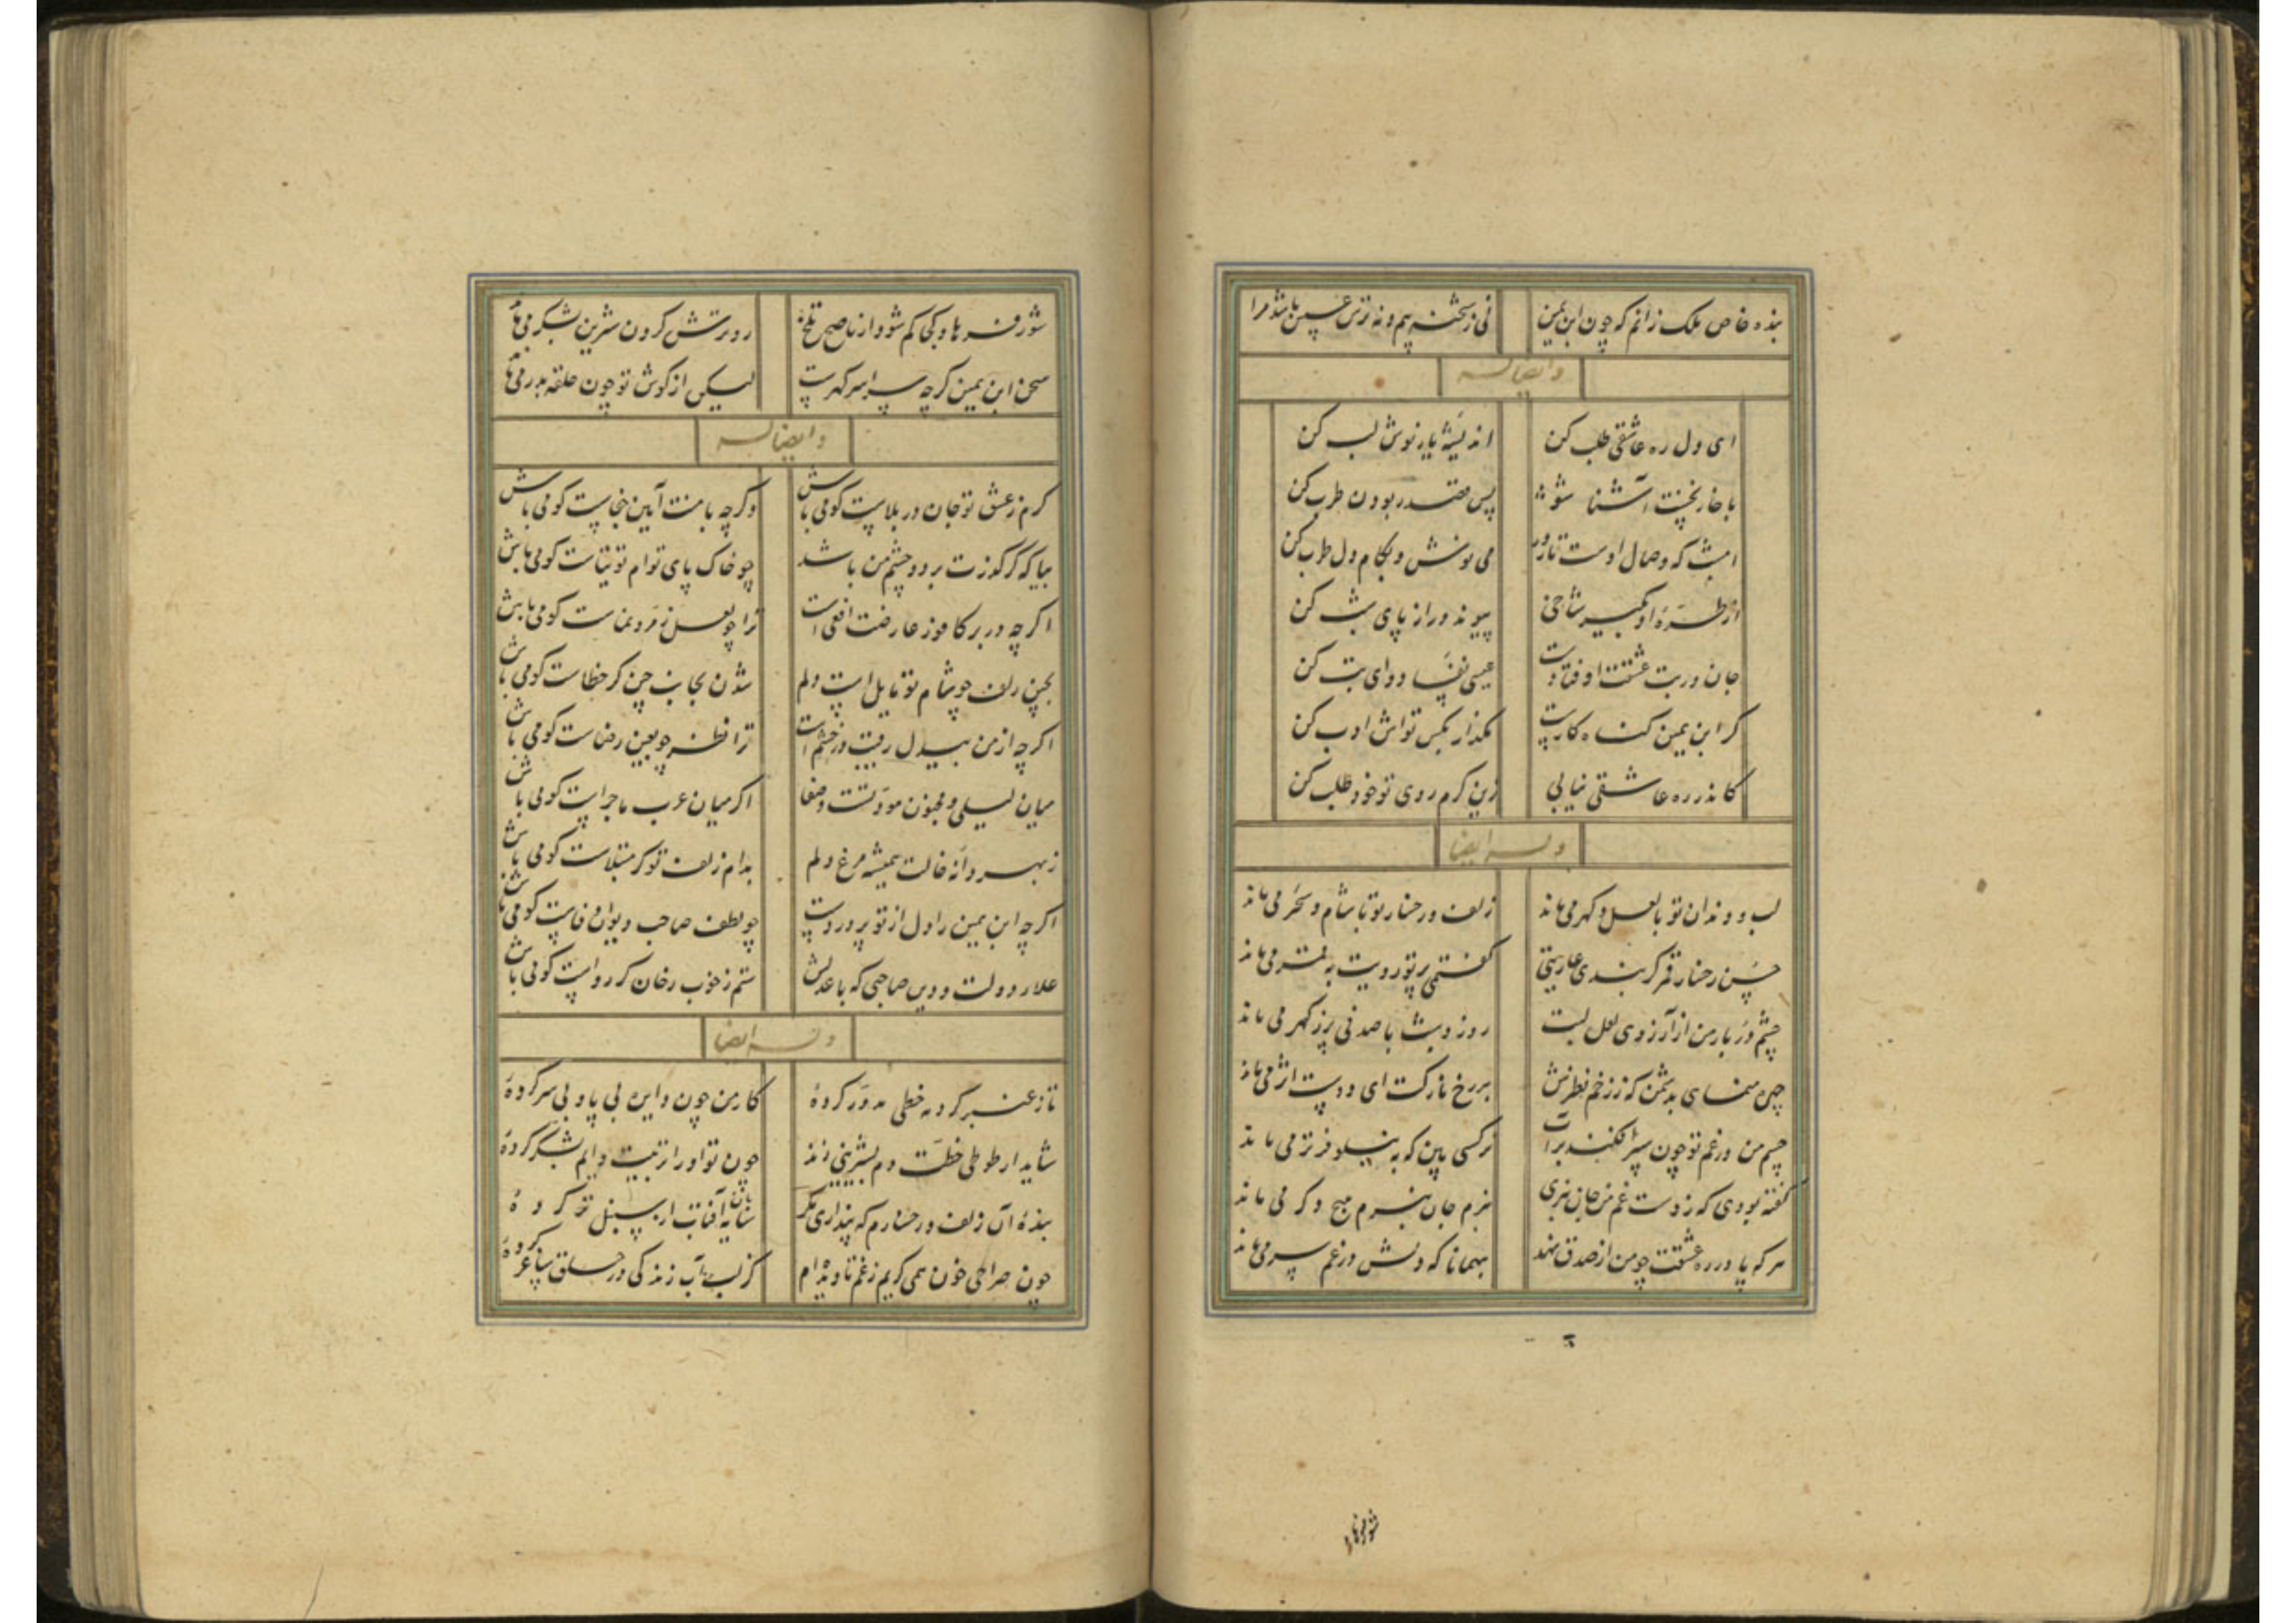 بنده خاص ملک زانم که چون ابن یمین نی ز شحنه بیم و نه ترس عسس باشد مرا
وایضا له
ای دل ره عاشقی طلب کن اندیشهٔ یار نوش لب کن
با خار نخست آشنا شو پس قصد ربودن طرب کن
امشب که وصال اوست تا روز می نوش و بکام دل طرب کن
از طرهٔ او بگیر شاخی پیوند دراز پای شب کن
جان در تب عشقت اوفتادست عیسی نفسا دوای تب کن
گر ابن یمین گناه کارست مگذار بکس تواش ادب کن
کاندر ره عاشقی نیابی زین گرم روی تو خود طلب کن
وله ایضا
لب و دندان تو با لعل و گهر می ماند زلف و رخسار تو با شام و سحر می ماند
حسن رخسار قمر گر نبدی عاریتی گفتمی پرتو رویت به قمر می ماند
چشم دربار من از آرزوی لعل لبت روز و شب با صدفی پر ز گهر می ماند
چهره منمای بدشمن که ز زخم نظرش بر رخ نازکت ای دوست اثر می ماند
چشم من در غم تو چون سپر افکند بر آب نرگسی بین که به نیلوفر تر می ماند
گفته بودی که ز دست غم من جان نبری نبرم جان نبرم هیچ دگر می ماند
هر که پا در ره عشقت چو من از صدق نهد بهمانا که دلش در غم سر می ماند
شور فرهاد کجا کم شود از ناصح تلخ رو ترش کردن شیرین بشکر می ماند
سخن ابن یمین گرچه سراسر گهرست لیکن از گوش تو چون حلقه بدر می ماند
وایضا له
گرم ز عشق تو جان در بلاست گو می باش وگرچه با منت آیین جفاست گو می باش
بیا که گر گذرت بر دو چشم من باشد چو خاک پای توام توتیاست گو می باش
اگرچه در بر کافور عارضت افعی است ترا چو لعل زمرد نماست گو می باش
بچین زلف چو شام تو مایل است دلم شدن بجانب چین گر خطاست گو می باش
اگرچه از من بیدل رقیب در خشم است ترا نظر چو بعین رضاست گو می باش
میان لیلی و مجنون مودتست و صفا اگر میان عرب ماجراست گو می باش
ز بهر دانه خالت همیشه مرغ دلم بدام زلف تو گر مبتلاست گو می باش
اگرچه ابن یمین را دل از تو پر دردست چو لطف صاحب دیوان شفاست گو می باش
علاء دولت و دین صاحبی که با عدلش ستم ز خوب رخان گر رواست گو می باش
وله ایضا
تا ز عنبر گرد مه خطی مدور کردهٔ کار من چون دایره بی پا و بی سر کردهٔ
شاید ار طوطی خطت دم بشیرینی زند چون تو او را تربیت دایم بشکر کردهٔ
بندهٔ آن زلف و رخسارم که پنداری مگر سایبان آفتاب از سنبل تر کردهٔ
چون صراحی خون همی گریم ز غم تا دیده‌ام کز لب آب زندگی در حلق ساغر کردهٔ
شور فرهاد